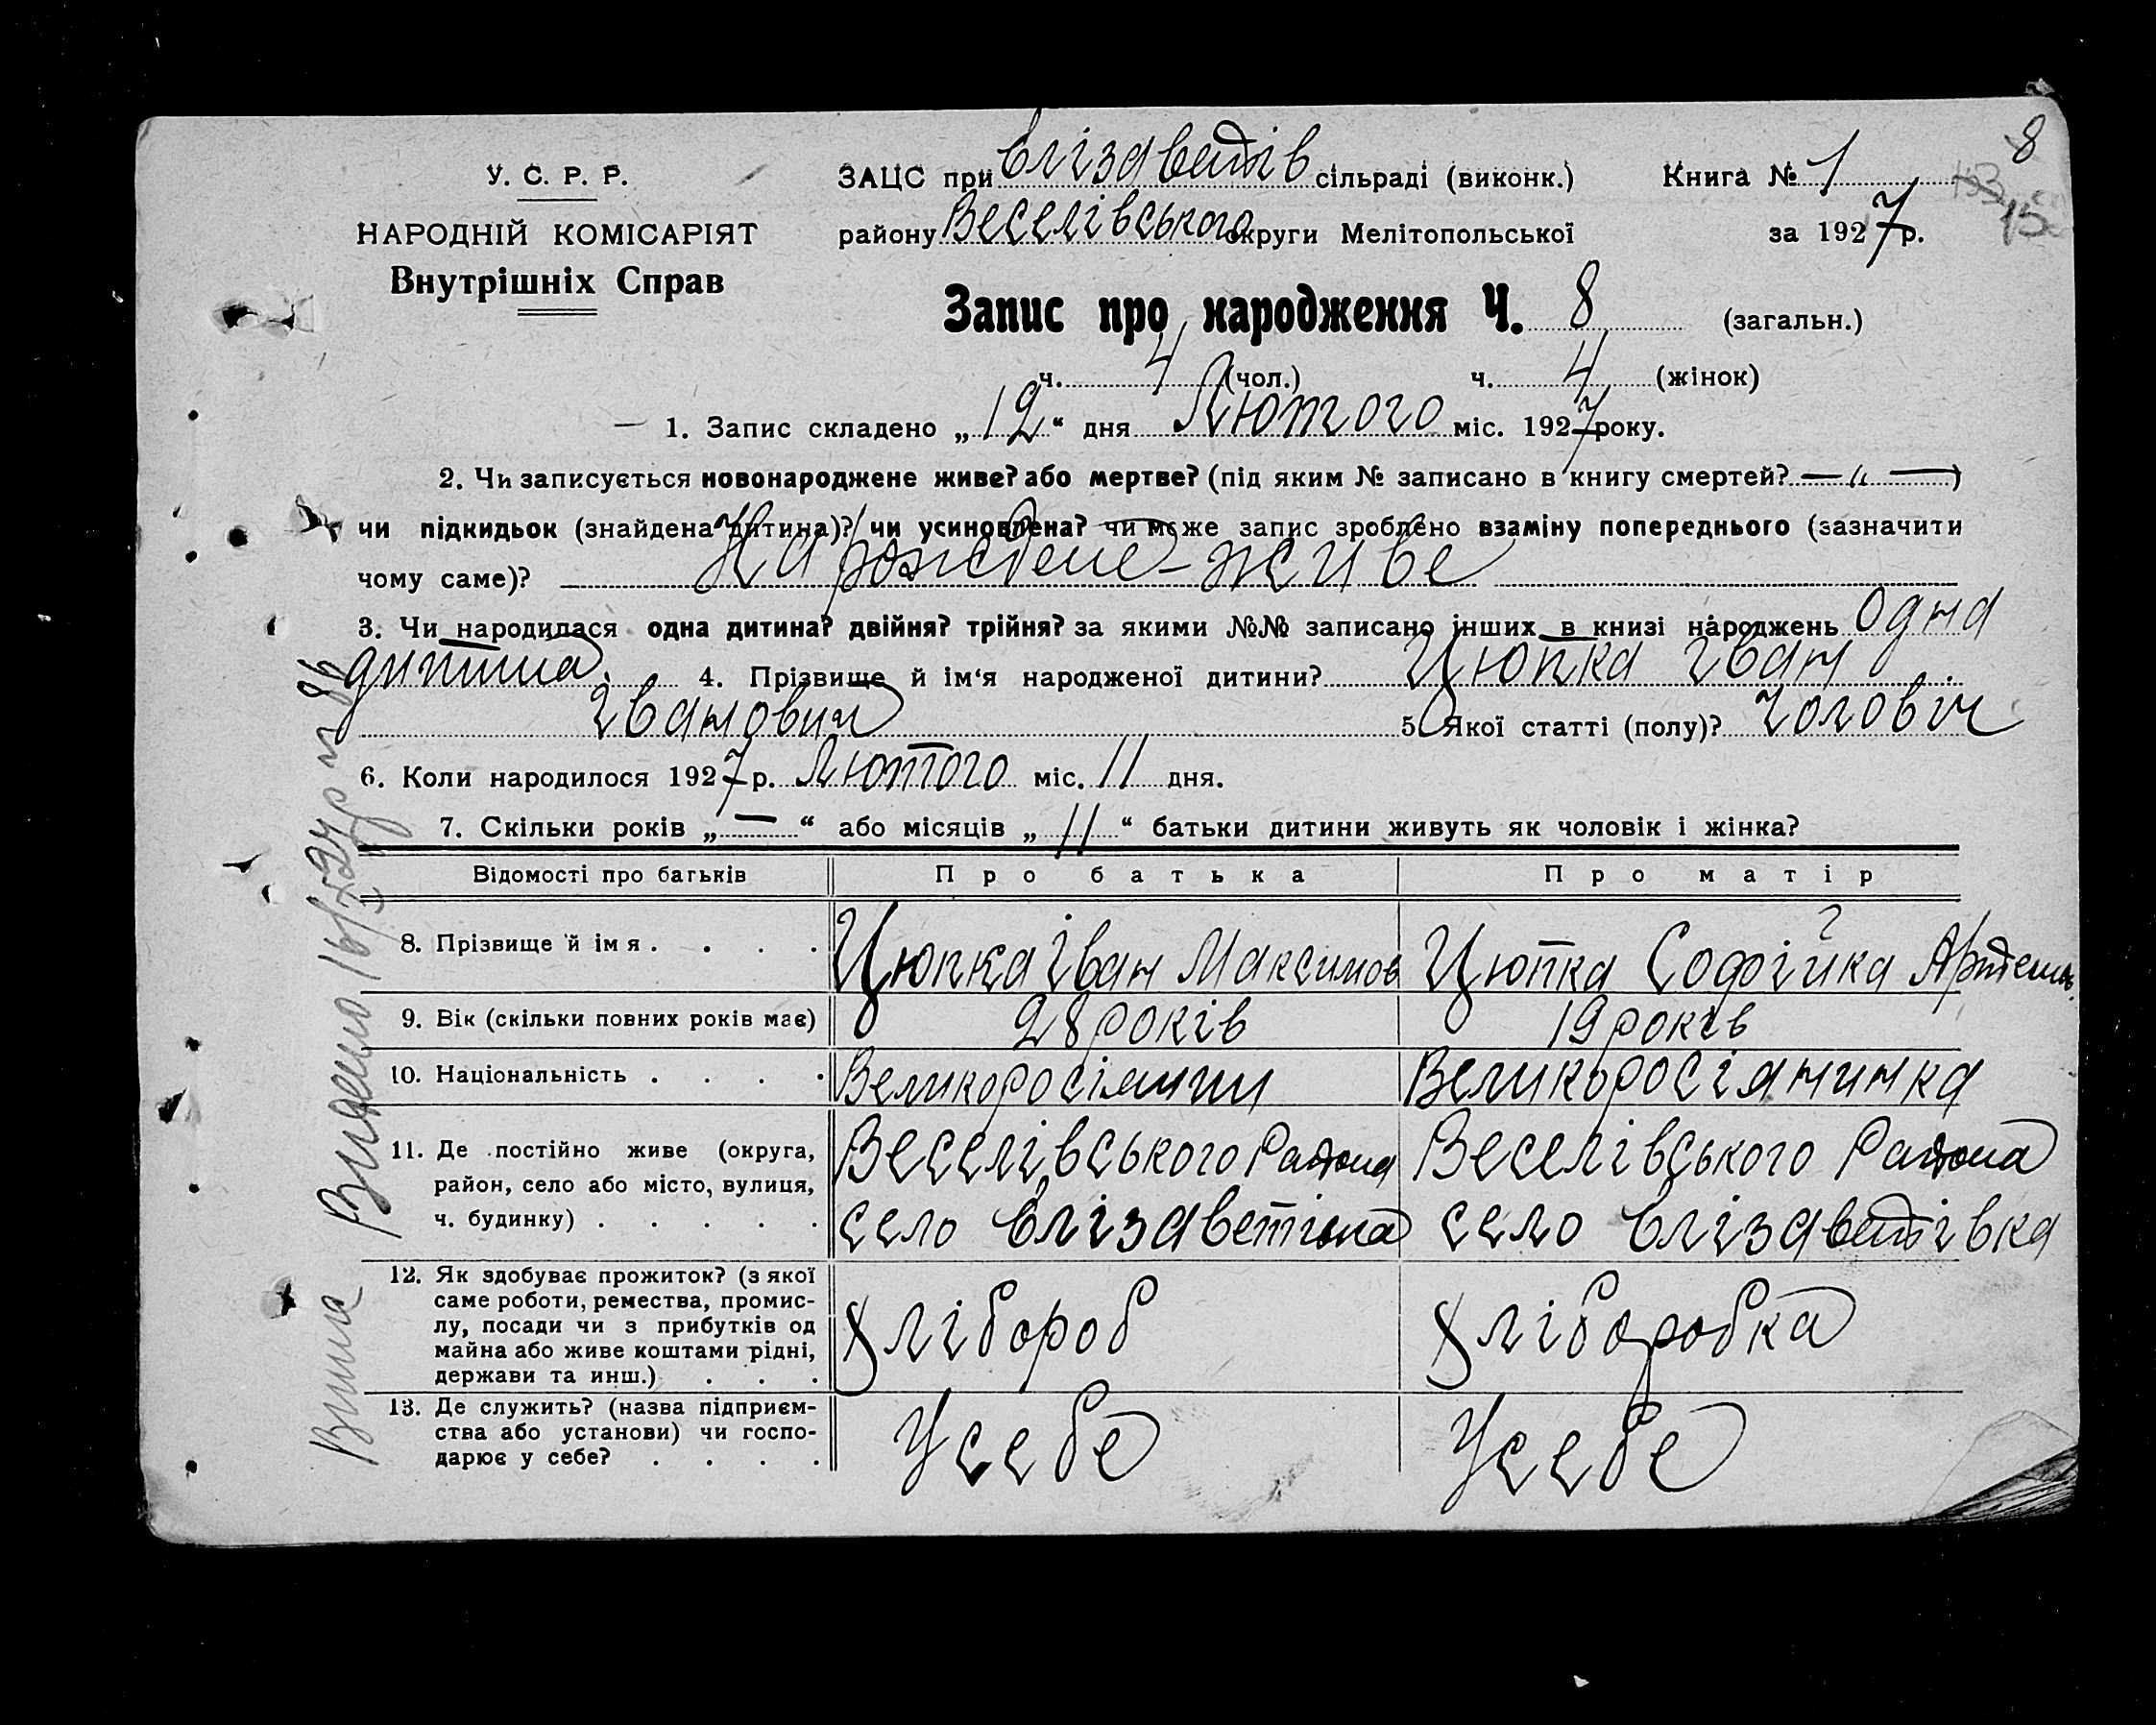 8
У. С. Р. Р.
НАРОДНІЙ КОМІСАРІЯТ
Внутрішніх Справ
ЗАЦС при Єлізаветів сільраді (виконк.)
Книга № 1
15
району Веселівського округи Мелітопольської
за 1927 р.
Запис про народження Ч. 8 (загальн.)
ч. 4 (чол.) ч. 4 (жінок)
1. Запис складено „12“ дня Лютого міс. 1927 року.
2. Чи записується новонароджене живе? або мертве? (під яким № записано в книгу смертей? — „ —)
чи підкидьок (знайдена дитина)? чи усиновлена? чи може запис зроблено взаміну попереднього (зазначити
чому саме)? Нарождене - живе
3. Чи народилася одна дитина? двійня? трійня? за якими №№ записано інших в книзі народжень Одна
дитина. 4. Прізвище й ім‘я народженої дитини? Цюпка Іван
Іванович 5. Якої статті (полу)? Чоловіч
6. Коли народилося 1927 р. Лютого міс. 11 дня.
7. Скільки років „—“ або місяців „11“ батьки дитини живуть як чоловік і жінка?
Відомості про батьків Про батька Про матір
8. Прізвище й імя . . . . Цюпка Іван Максимов Цюпка Софійка Артемов.
9. Вік (скільки повних років має) 28 років 19 років
10. Національність . . . . Великоросіянин Великоросіянинка
11. Де постійно живе (округа, Веселівського Района Веселівського Района
район, село або місто, вулиця,
ч. будинку) . . . . . село Єлізаветівка село Єлізаветівка
12. Як здобуває прожиток? (з якої
саме роботи, ремества, промис-
лу, посади чи з прибутків од Хлібороб Хліборобка
майна або живе коштами рідні,
держави та инш.) . . .
13. Де служить? (назва підприєм-
ства або установи) чи госпо- Усебе Усебе
дарює у себе? . . . .